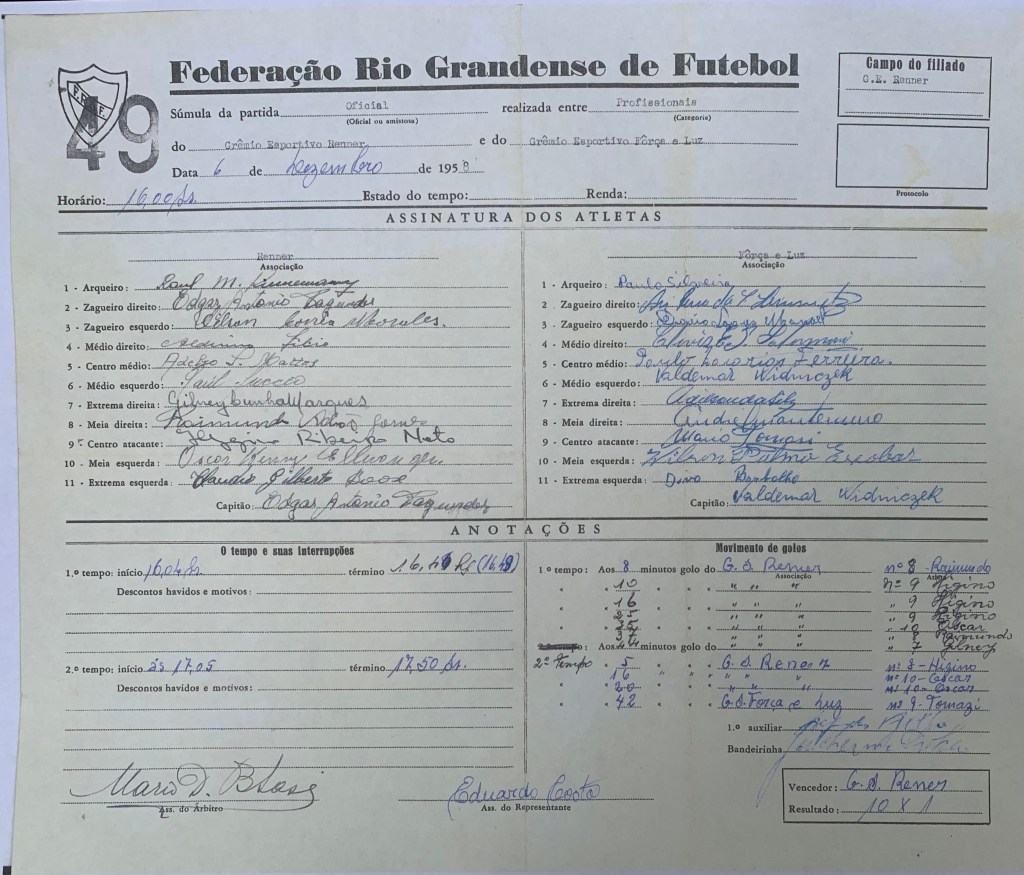 Federação Rio Grandense de Futebol
F.R.G.F.
49
Campo do filiado
G.E. Renner
Súmula da partida Oficial realizada entre Profissionais
(Oficial ou amistosa) (Categoria)
do Grêmio Esportivo Renner e do Grêmio Esportivo Fôrça e Luz
Data 6 de Dezembro de 1958
Protocolo
Horário: 16,00 hs. Estado do tempo: Renda:
ASSINATURA DOS ATLETAS
Renner Fôrça e Luz
Associação Associação
1 - Arqueiro: Raul M. 1 - Arqueiro: Paulo Silveira
2 - Zagueiro direito: Edgar Antônio Fagundes 2 - Zagueiro direito:
3 - Zagueiro esquerdo: Wilson Corrêa Morales. 3 - Zagueiro esquerdo:
4 - Médio direito: 4 - Médio direito:
5 - Centro médio: Adelso P. Mattos 5 - Centro médio: Paulo Ferreira.
6 - Médio esquerdo: 6 - Médio esquerdo: Valdemar Widniczek
7 - Extrema direita: Gilney Cunha Marques 7 - Extrema direita:
8 - Meia direita: Raimundo Gomes 8 - Meia direita:
9 - Centro atacante: Ribeiro Neto 9 - Centro atacante: Mario Tomasi
10 - Meia esquerda: Oscar 10 - Meia esquerda: Wilson Palma Escobar
11 - Extrema esquerda: Claudio Gilberto 11 - Extrema esquerda: Barbalho
Capitão: Edgar Antônio Fagundes Capitão: Valdemar Widniczek
ANOTAÇÕES
O tempo e suas interrupções Movimento de golos
1.º tempo: início 16,04 hs. término 16,49 hs (16,49) 1.º tempo: Aos 8 minutos golo do G. S. Rener nº 8 - Raimundo
Associação
Descontos havidos e motivos: " " 10 " " " " " nº 9 Higino
" " 16 " " " " " " 9 Higino
" " 25 " " " " " " 9 Higino
" " " " " " " " 10 Oscar
" " 37 " " " " " " 8 Raimundo
Aos 44 minutos golo do " " " " 7 Gilney
2.º tempo: início ás 17,05 término 17,50 hs. 2º tempo " 5 " " " G. S. Rener nº 8 - Higino
" " 16 " " " " " " nº 10 - Oscar
Descontos havidos e motivos: " " 20 " " " " " " nº 10 - Oscar
" " 42 " " " G. S. Força e Luz nº 9 - Tomazi
1.º auxiliar
Bandeirinha
Mario D.
Ass. do Árbitro
Eduardo Costa
Ass. do Representante
Vencedor: G. S. Rener
Resultado: 10 x 1